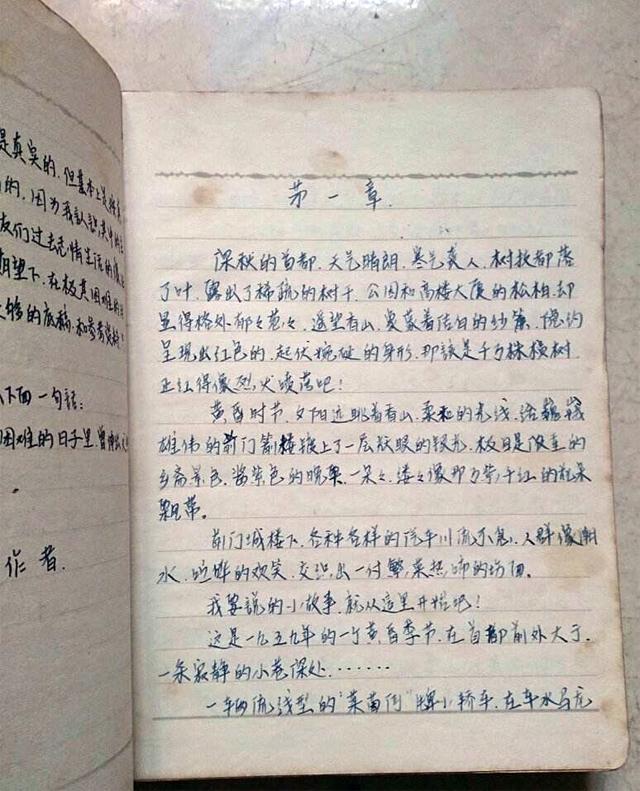 是真实的，但基本上是
的，因为我认
友们过去
期望下，在极其困难的
够的底稿，和参考资料
下面一句話：
困难的日子里，曾
作者
第一章.
深秋的首都，天气晴朗，寒气袭人，树枝都落
了叶，露出了稀疏的树干，公园和高楼大厦的松柏却
显得格外郁々苍々，遥望香山，要蒙着洁白的纱，隐约
呈现出红色的，起伏蜿蜒的身形，那該是千万株横树
正红得像烈火喷落吧！
黄昏时节，夕阳远眺着香山，柔和的光线，给巍峨
雄伟的前门箭楼披上了一层耀眼的银光，极目是浓重的
乡斋景色，酱紫色的晚霞，一朵々，缕々像那万紫千红的花朵
飘带。
前门城楼下，各种各样的汽车川流不息，人群像潮
水，喧哗的欢笑，交织出一付繁荣热闹的场面。
我要說的小故事，就从这里开始吧！
这是一九五九年的一个黄昏季节，在首都前外大于，
一条寂静的小巷深处·······
一辆流线型的“莱茵河”牌小轿车，在车水马龙